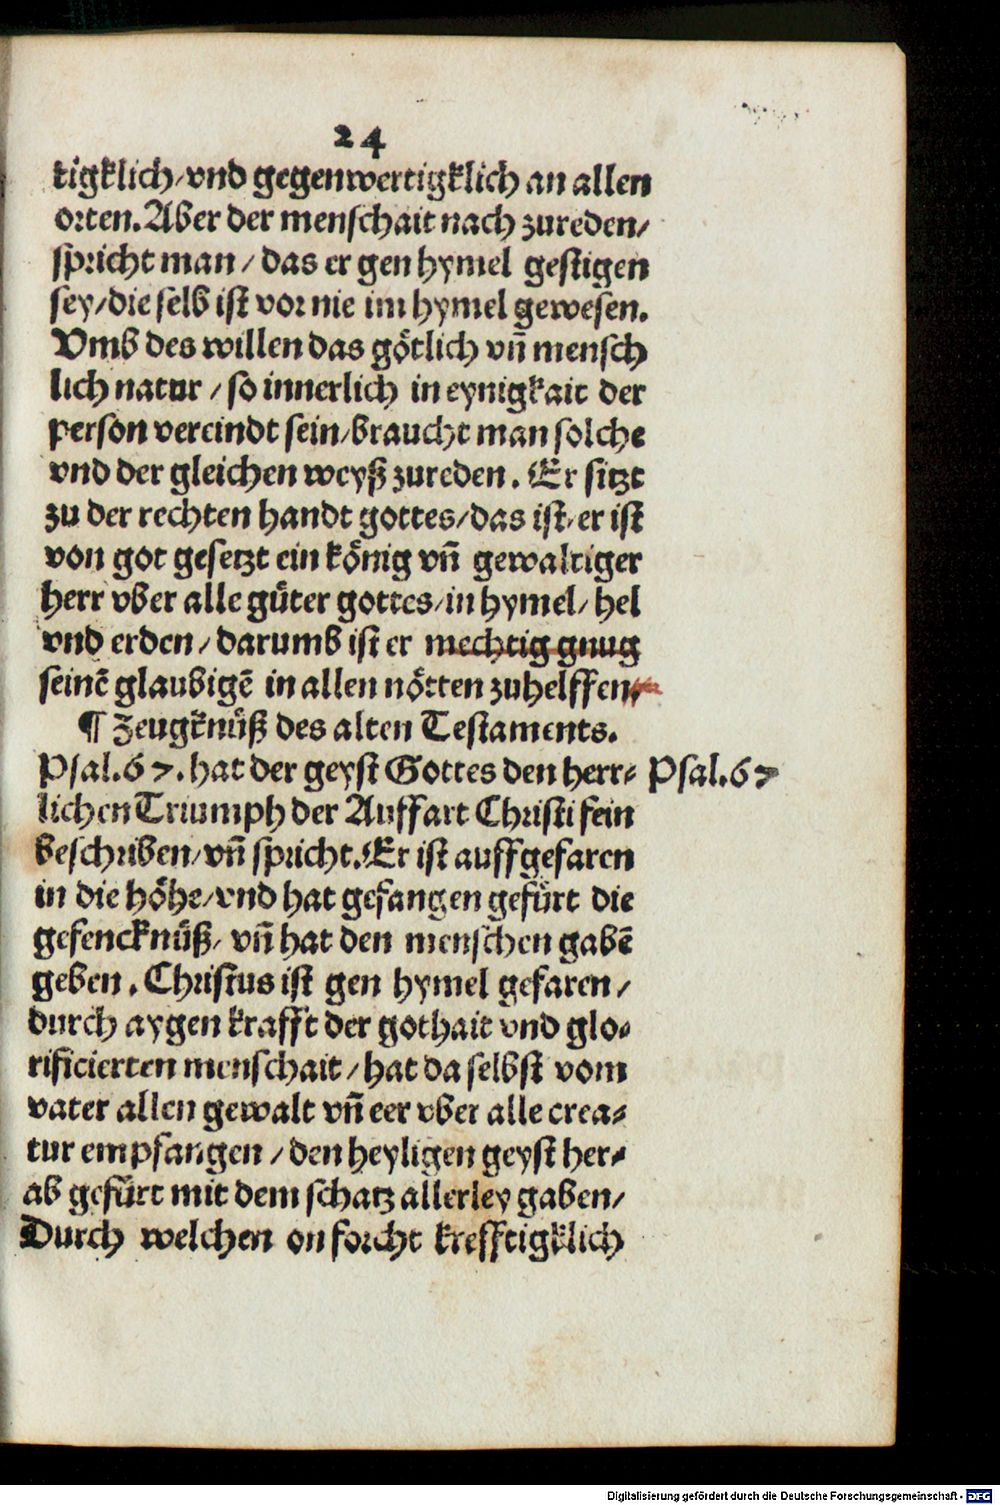 24
tigklich/vnd gegenwertigklich an allen
orten. Aber der menschait nach zureden/
spricht man / das er gen hymel gestigen
sey/die selb ist vor nie im hymel gewesen.
Vmb des willen das götlich vñ mensch
lich natur / so innerlich in eynigkait der
person vereindt sein/braucht man solche
vnd der gleichen weyß zureden. Er sitzt
zu der rechten handt gottes/das ist/er ist
von got gesetzt ein König vñ gewaltiger
herr vber alle güter gottes/in hymel/ hel
vnd erden / darumb ist er mechtig gnug
seinē glaubigē in allen nötten zuhelffen.
¶ Zeugknüß des alten Testaments.
Psal.67. hat der geyst Gottes den herr⸗ Psal.67
lichen Triumph der Auffart Christi fein
beschriben/vñ spricht. Er ist auffgefaren
in die höhe/vnd hat gefangen gefürt die
gefencknüß/ vñ hat den menschen gabē
geben. Christus ist gen hymel gefaren /
durch aygen krafft der gothait vnd glo⸗
rificierten menschait / hat da selbst vom
vater allen gewalt vñ eer vber alle crea⸗
tur empfangen / den heyligen geyst her⸗
ab gefürt mit dem schatz allerley gaben/
Durch welchen on forcht krefftigklich
Digitalisierung gefördert durch die Deutsche Forschungsgemeinschaft - DFG